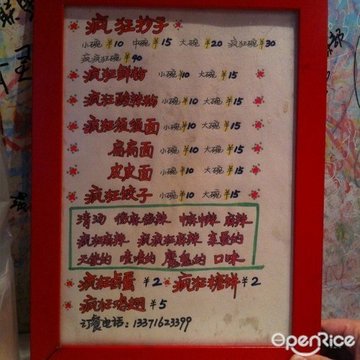 疯狂抄手
小碗¥10 中碗¥15 大碗¥20 疯狂碗¥30
疯疯狂碗¥40
疯狂鲜粉 小碗¥10 大碗¥15
疯狂酸辣粉 小碗¥10 大碗¥15
疯狂面 小碗¥10 大碗¥15
扁扁面 小碗¥10 大碗¥15
皮皮面 小碗¥10 大碗¥15
疯狂饺子 小碗¥10 大碗¥15
清汤 微麻微辣 中麻中辣 麻辣
疯狂麻辣 疯疯狂麻辣 亲爱的
天使的 嘻嘻的 魔鬼的 口味
疯狂卤蛋 ¥2 疯狂糖饼 ¥2
疯狂鸡翅 ¥5
订餐电话:13371623399
OpenRice